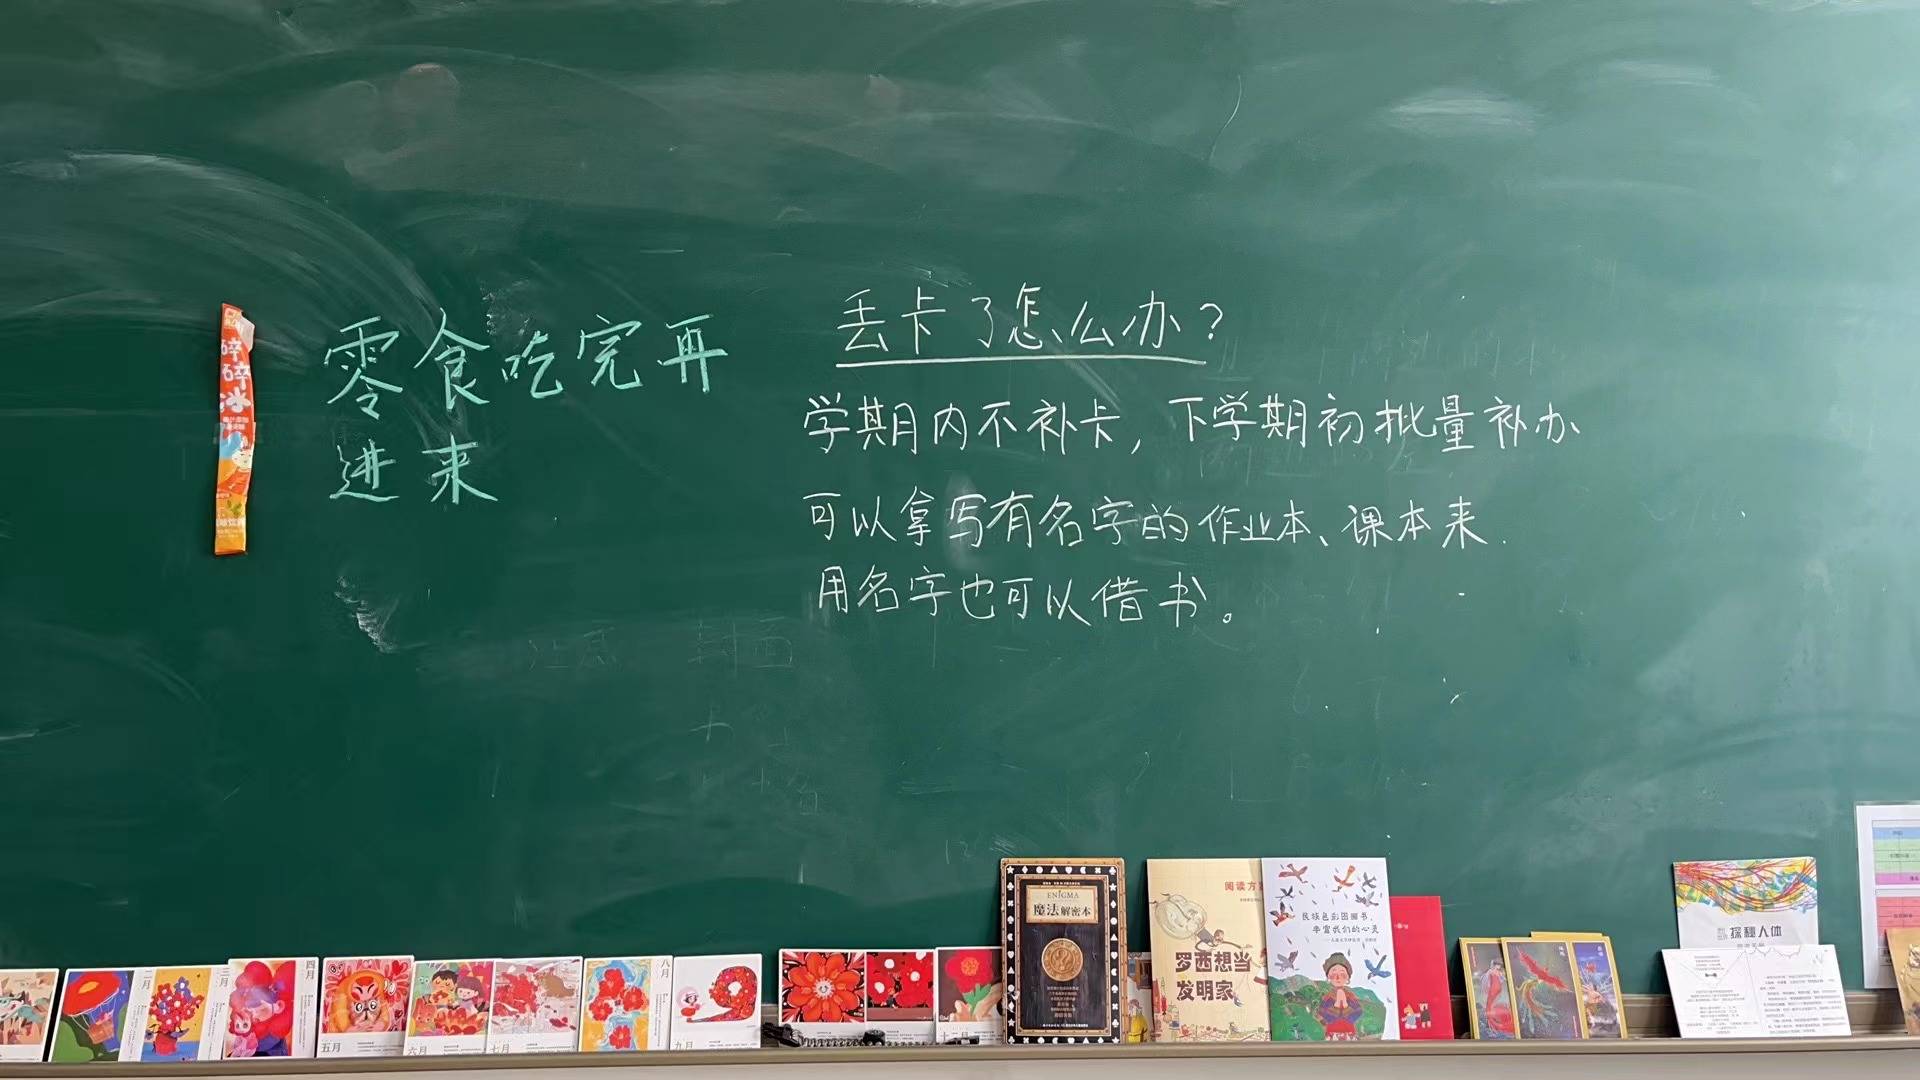 零食吃完再
进来
丢卡了怎么办？
学期内不补卡，下学期初批量补办
可以拿写有名字的作业本、课本来.
用名字也可以借书。
碎
碎
冰
注意 封面
ENIGMA
魔法解密本
阅读方
罗西想当
发明家
民族色彩图画书，
丰富我们的心灵
探秘人体
二月
三月
四月
五月
六月
七月
八月
九月
十二月